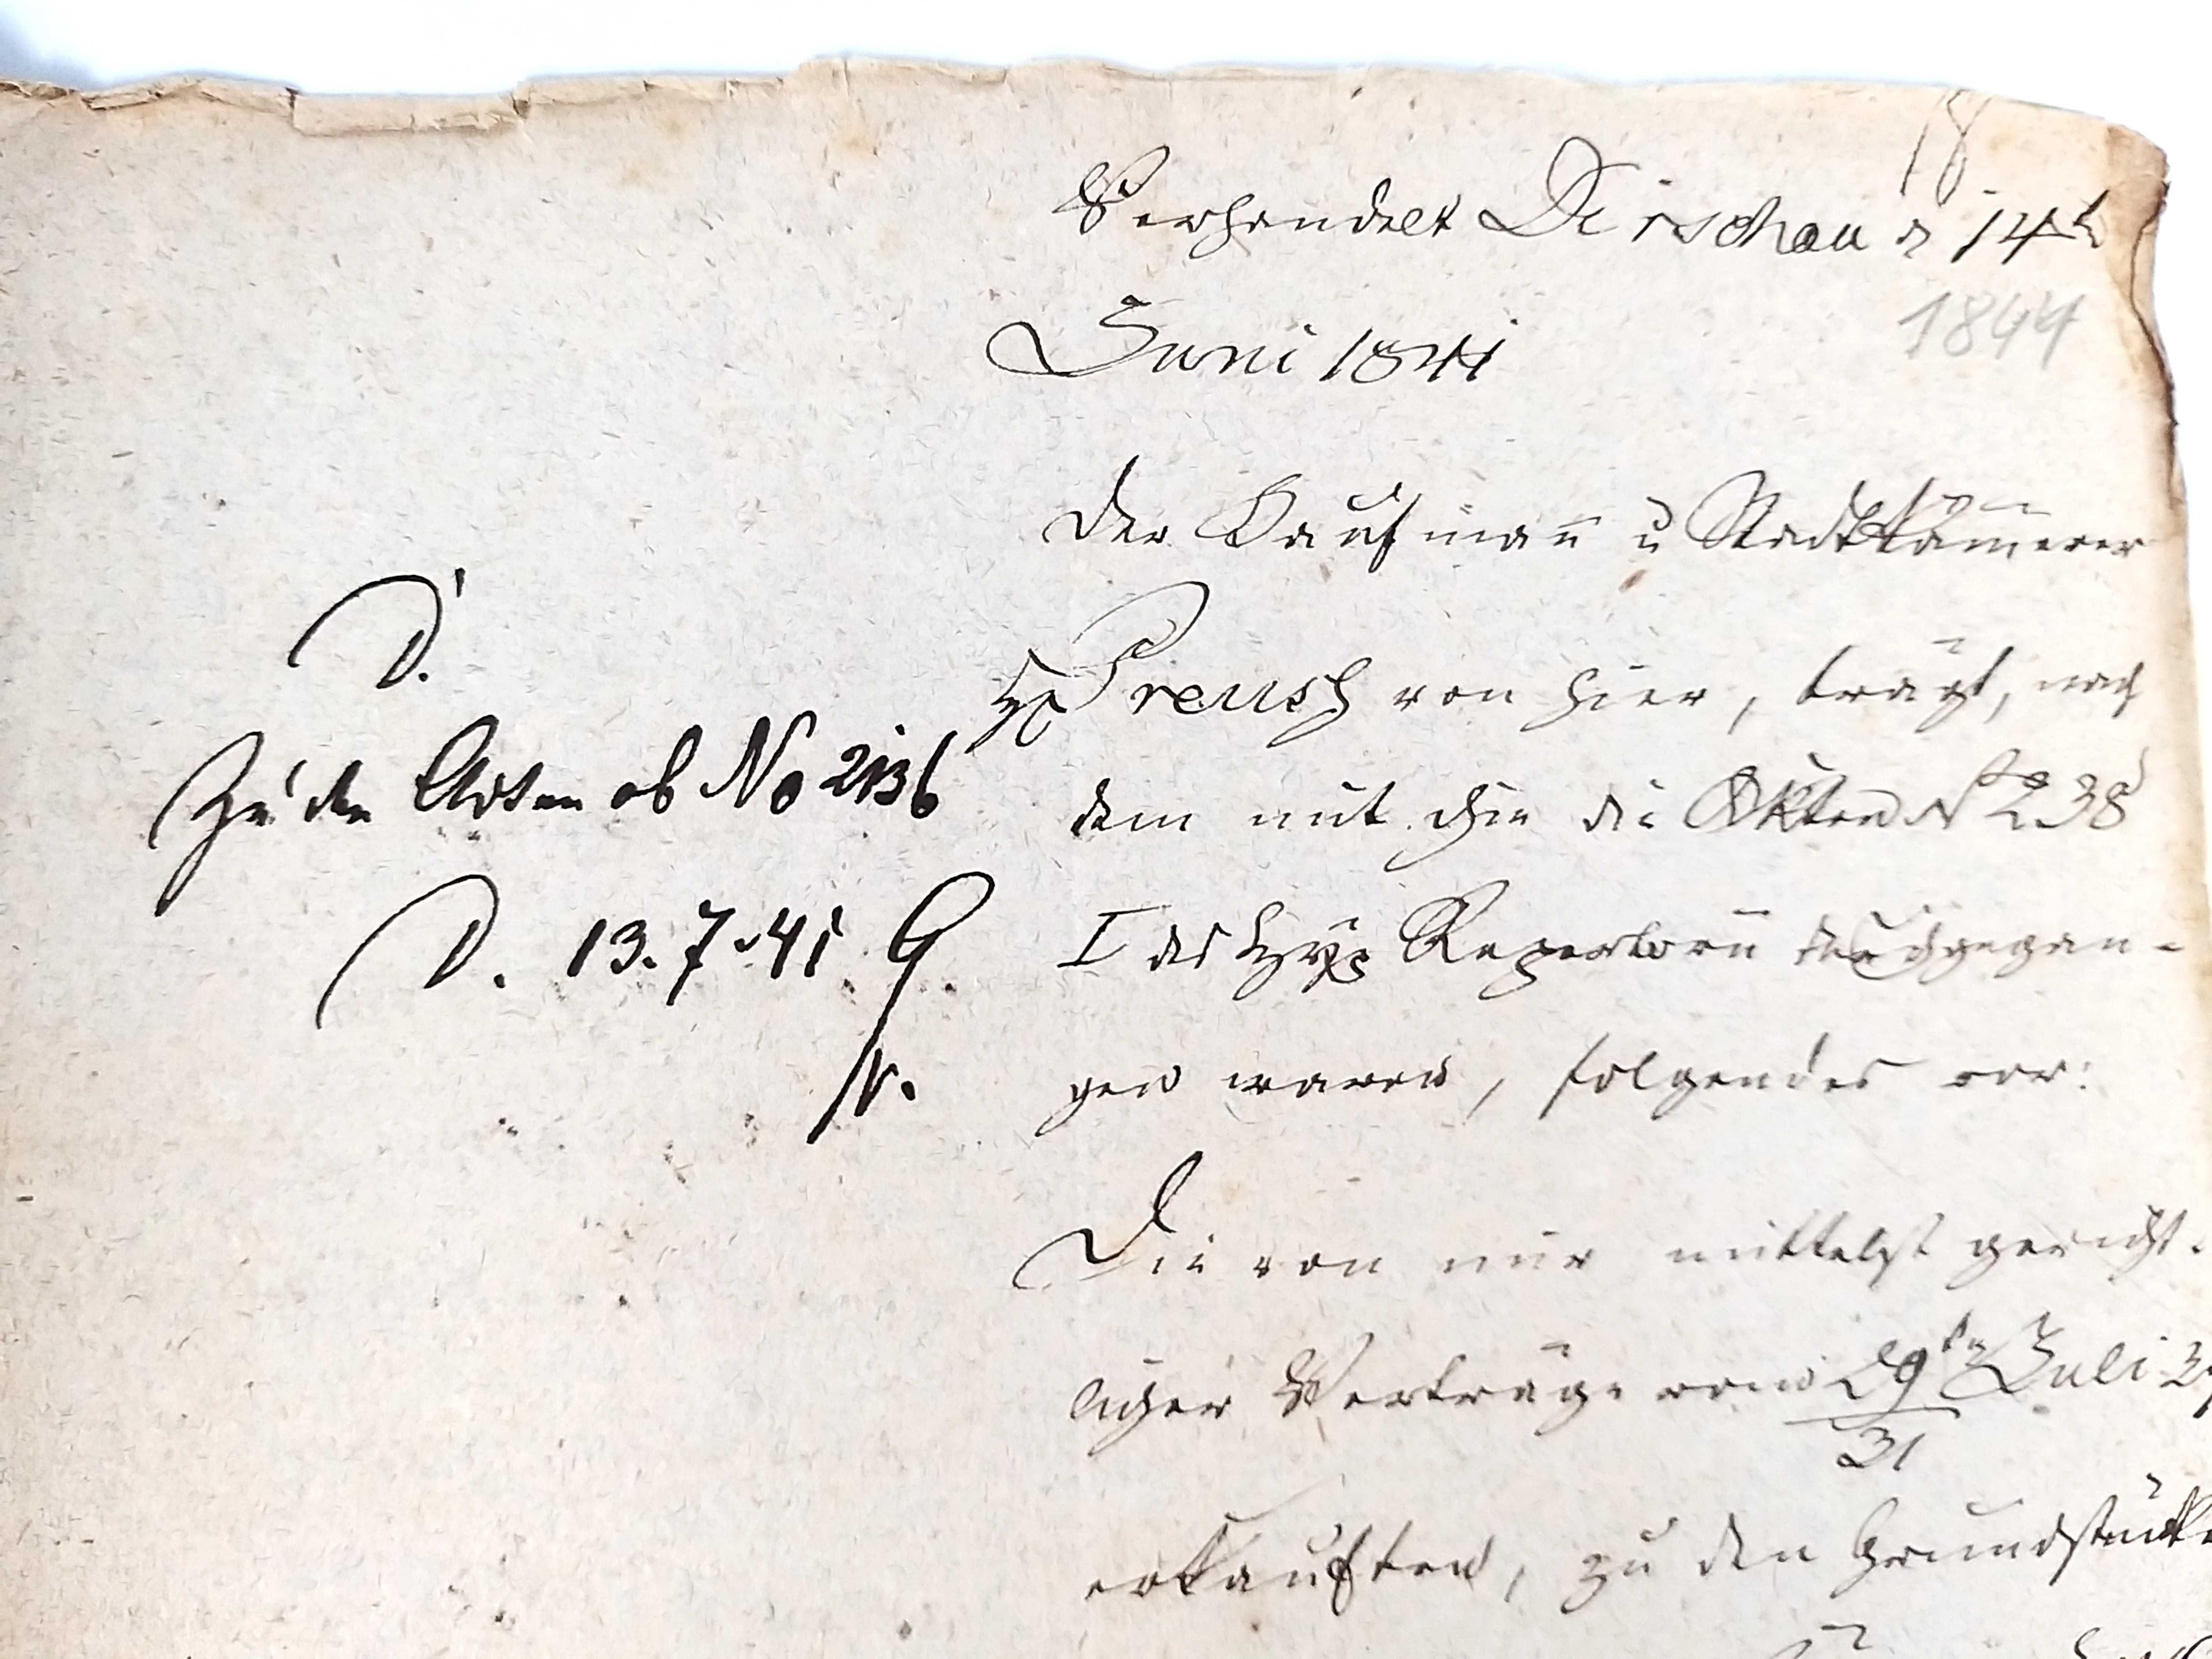 18
Verhandelt Dirschau d 14t
Juni 1841
1844
Der Kaufmañ u Stadtkäm̄erer
H Preush von hier, trägt, nach
dem mit ihm die Akten No 238
I des Hyp Repertorii durchgegan-
gen waren, folgendes vor:
Die von mir mittelst gericht-
licher Verträge vom 29ten Juli
31
erkauften, zu den Grundstücke
D.
Zu den Acten ob No 2136
D. 13.7.41 G